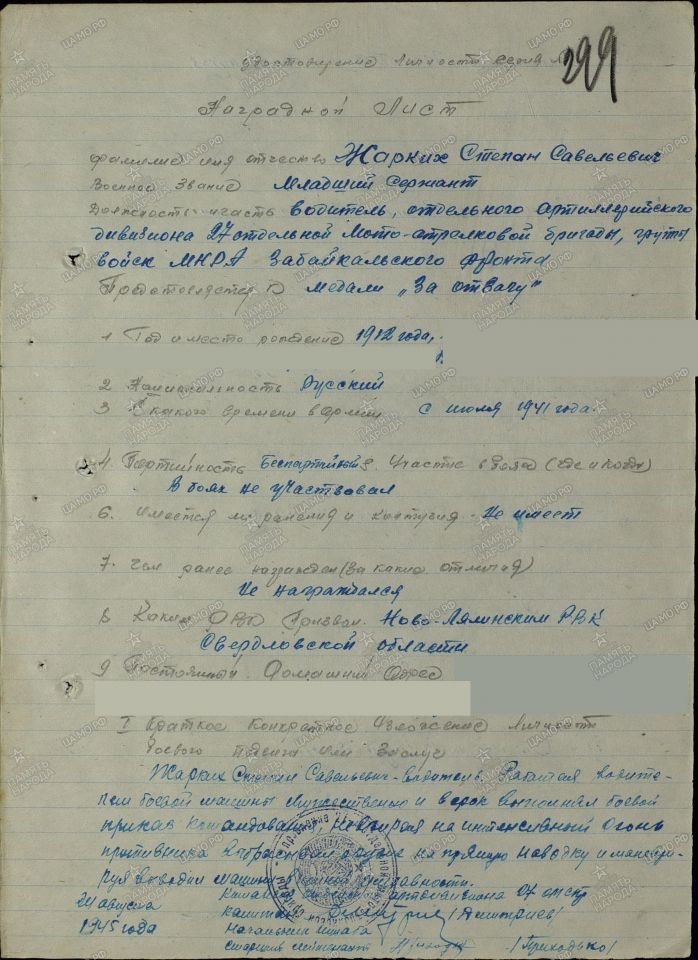 удостоверение личности серия №
299
Наградной Лист
фамилия имя отчество Жарких Степан Савельевич
Военное звание Младший Сержант
Должность и часть водитель, отдельного артиллерийского
дивизиона 27 отдельной Мото-стрелковой бригады, группы
войск МНРА Забайкальского фронта
Представляется к медали „За отвагу"
1 Год и место рождение 1912 года,
2 Национальность Русский
3 С какого времени в армии с июля 1941 года.
4 Партийность Беспартийный 5. Участие в боях (где и когда)
В боях не участвовал
6. Имеется ли ранения и контузия - Не имеет
7. Чем ранее награжден (за какие отличия)
Не награждался
8 Каким РВК Призван. Ново-Лялинским РВК
Свердловской области
9 Постоянный Домашний Адрес
I Краткое Конкретное Изложение Личного
боевого подвига или заслуг
Жарких Степан Савельевич - водитель. Работая водите-
лем боевой машины Мужественно и в срок выполнял боевой
приказ командования, невзирая на интенсивный огонь
противника на прямую наводку и маневри-
руя выводил машину
артдивизиона 27 омсбр
24 августа капитан /Дмитриев/
1945 года Начальник штаба
старший лейтенант /Приходько/